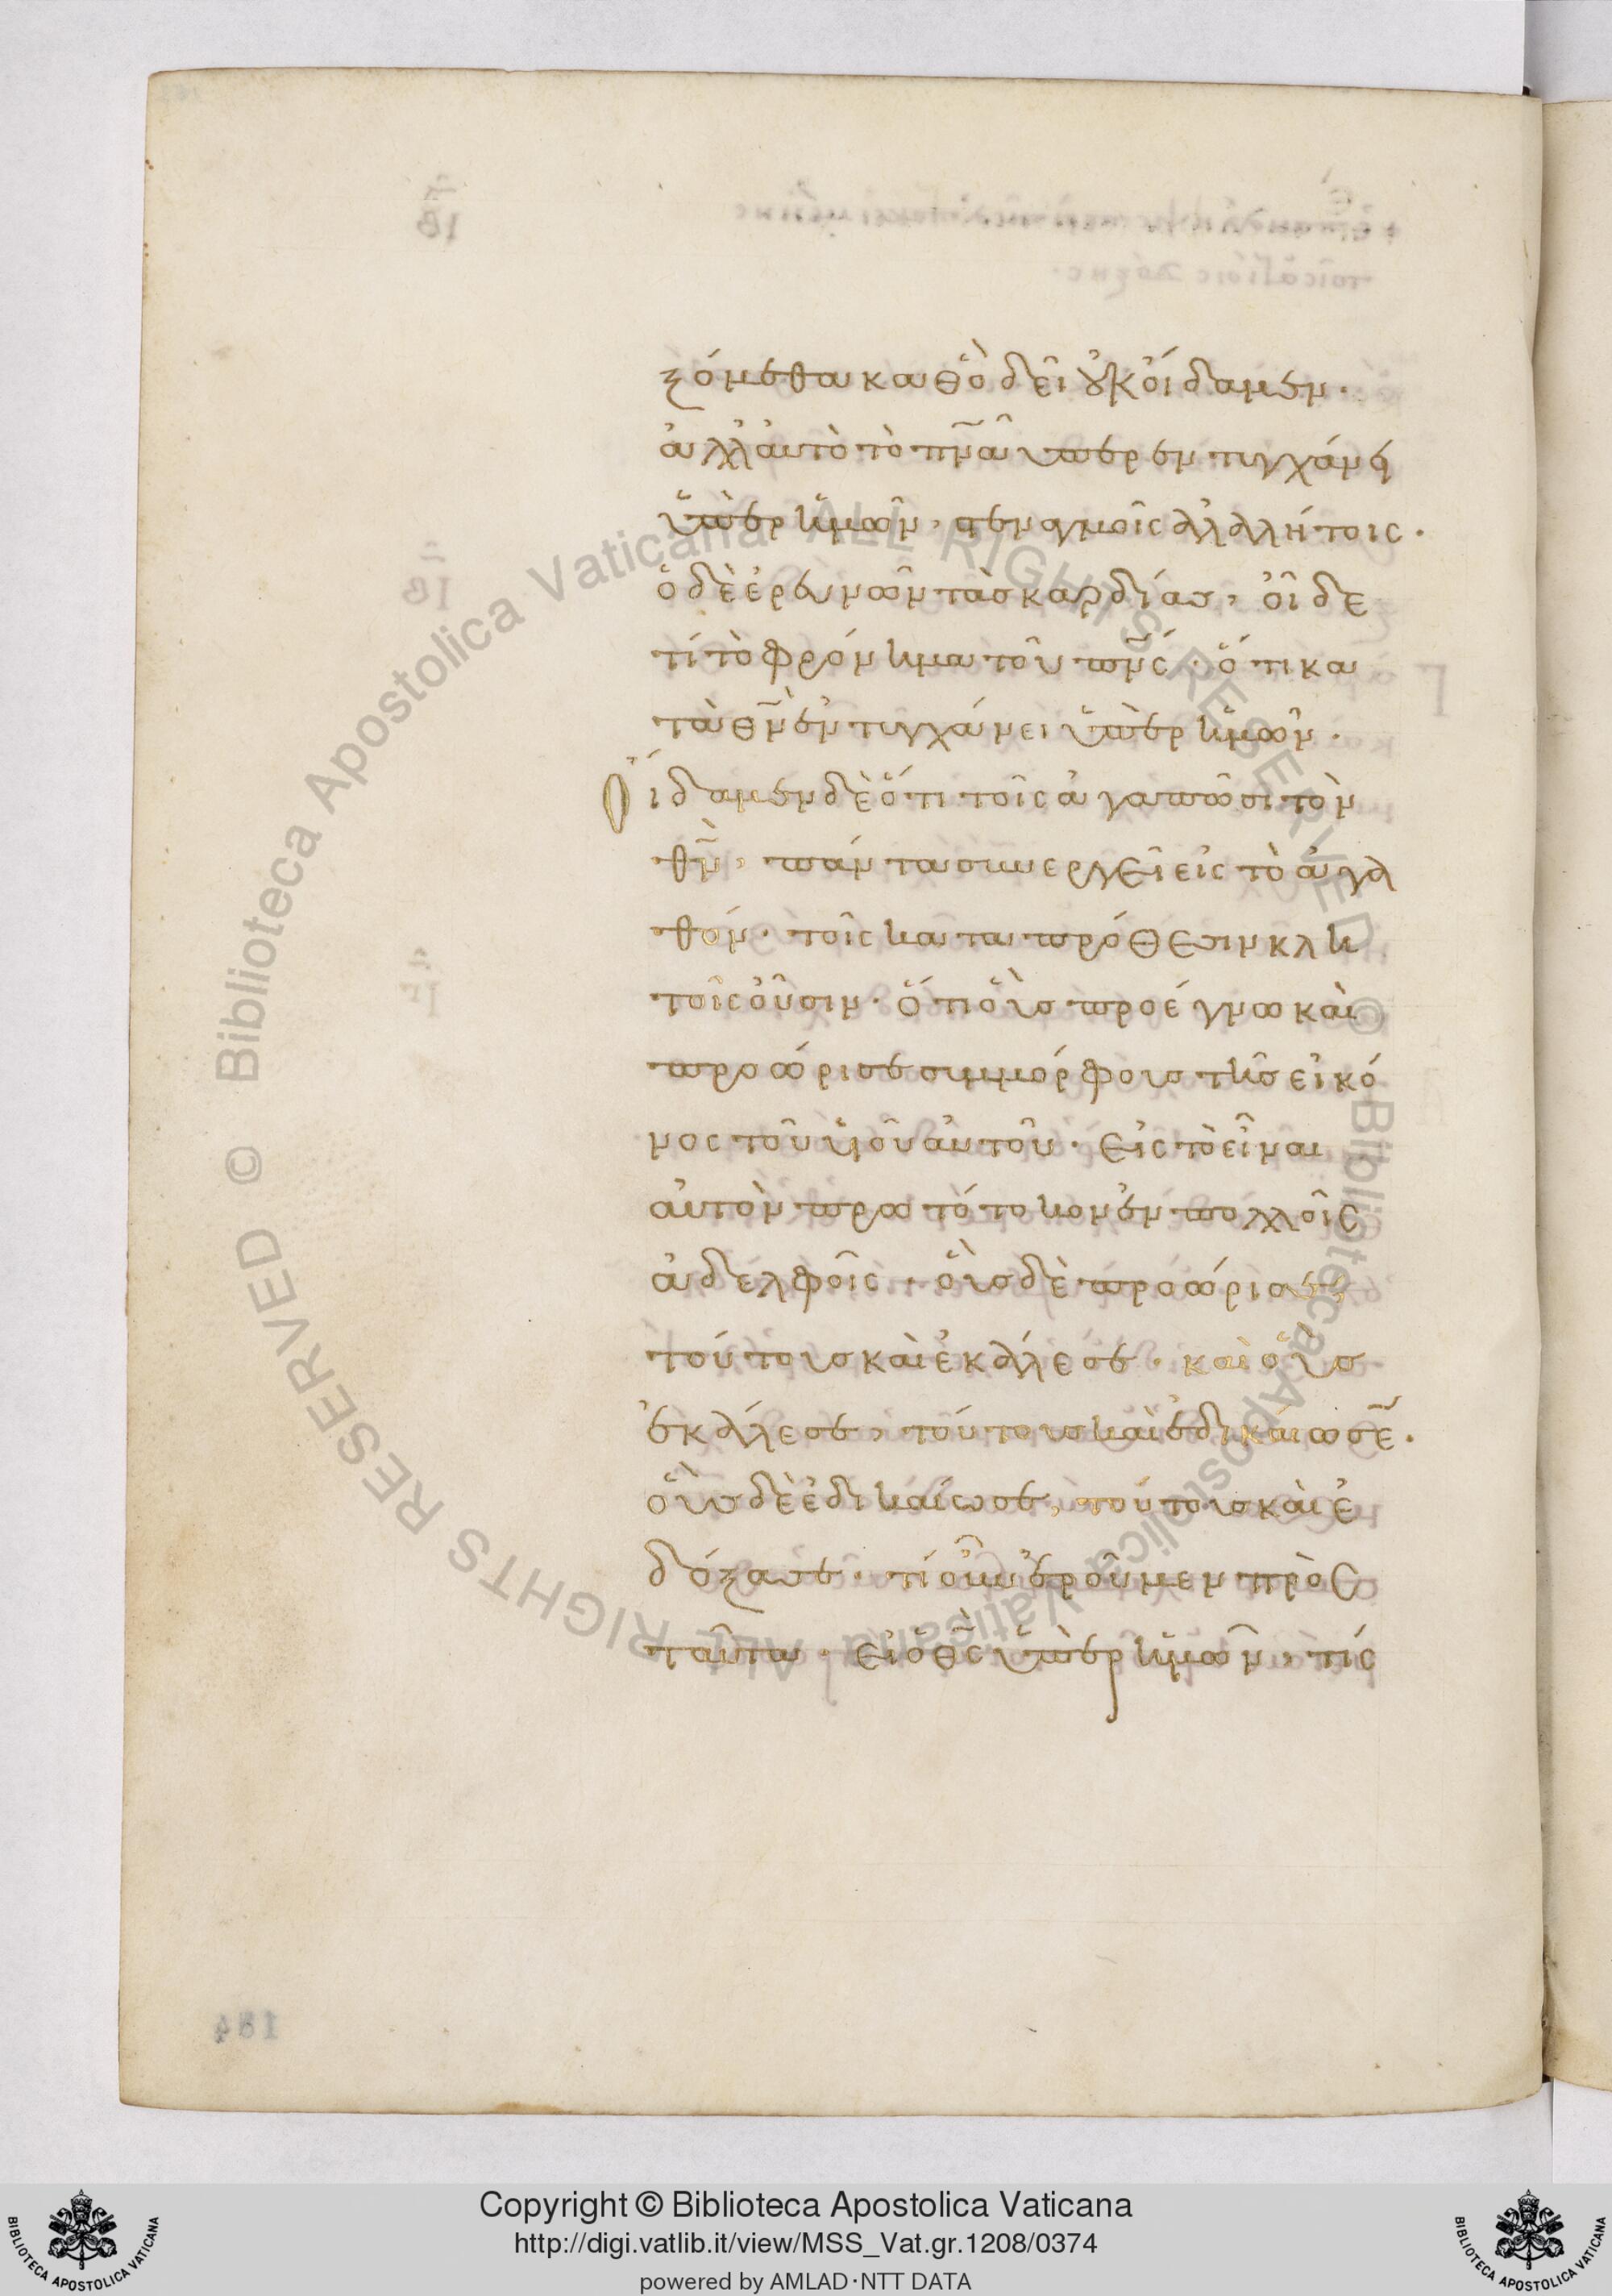 ξόμεθα καθὸ δεῖ οὐκ οἴδαμεν·
ἀλλ' αὐτὸ τὸ πνᾶ ὑπερεντυγχάνει
ὑπὲρ ἡμῶν, στεναγμοῖς ἀλαλήτοις.
ὁ δὲ ἐρευνῶν τὰς καρδίας, οἶδε
τί τὸ φρόνημα τοῦ πνς· ὅτι κα
τὰ θν ἐντυγχάνει ὑπὲρ ἡμῶν.
Οἴδαμεν δὲ ὅτι τοῖς ἀγαπῶσι τὸν
θν, πάντα συνεργεῖ εἰς τὸ ἀγα
θόν· τοῖς κατα πρόθεσιν κλη
τοῖς οὖσιν. ὅτι οὓς προέγνω καὶ
προώρισε συμμόρφους τῆς εἰκό
νος τοῦ υἱοῦ αὐτοῦ· εἰς τὸ εἶναι
αὐτὸν πρωτότοκον ἐν πολλοῖς
ἀδελφοῖς· οὓς δὲ προώρισε,
τούτους καὶ ἐκάλεσε· καὶ οὓς
ἐκάλεσε, τούτους καὶ ἐδικαίωσε.
οὓς δὲ ἐδικαίωσε, τούτους καὶ ἐ
δόξασε· τί οὖν ἐροῦμεν πρὸς
ταῦτα· εἰ ὁ θς ὑπὲρ ἡμῶν, τίς
© Biblioteca Apostolica Vaticana ALL RIGHTS RESERVED
© Biblioteca Apostolica Vaticana ALL RIGHTS RESERVED
184
Copyright © Biblioteca Apostolica Vaticana
http://digi.vatlib.it/view/MSS_Vat.gr.1208/0374
powered by AMLAD·NTT DATA
BIBLIOTECA APOSTOLICA VATICANA
BIBLIOTECA APOSTOLICA VATICANA